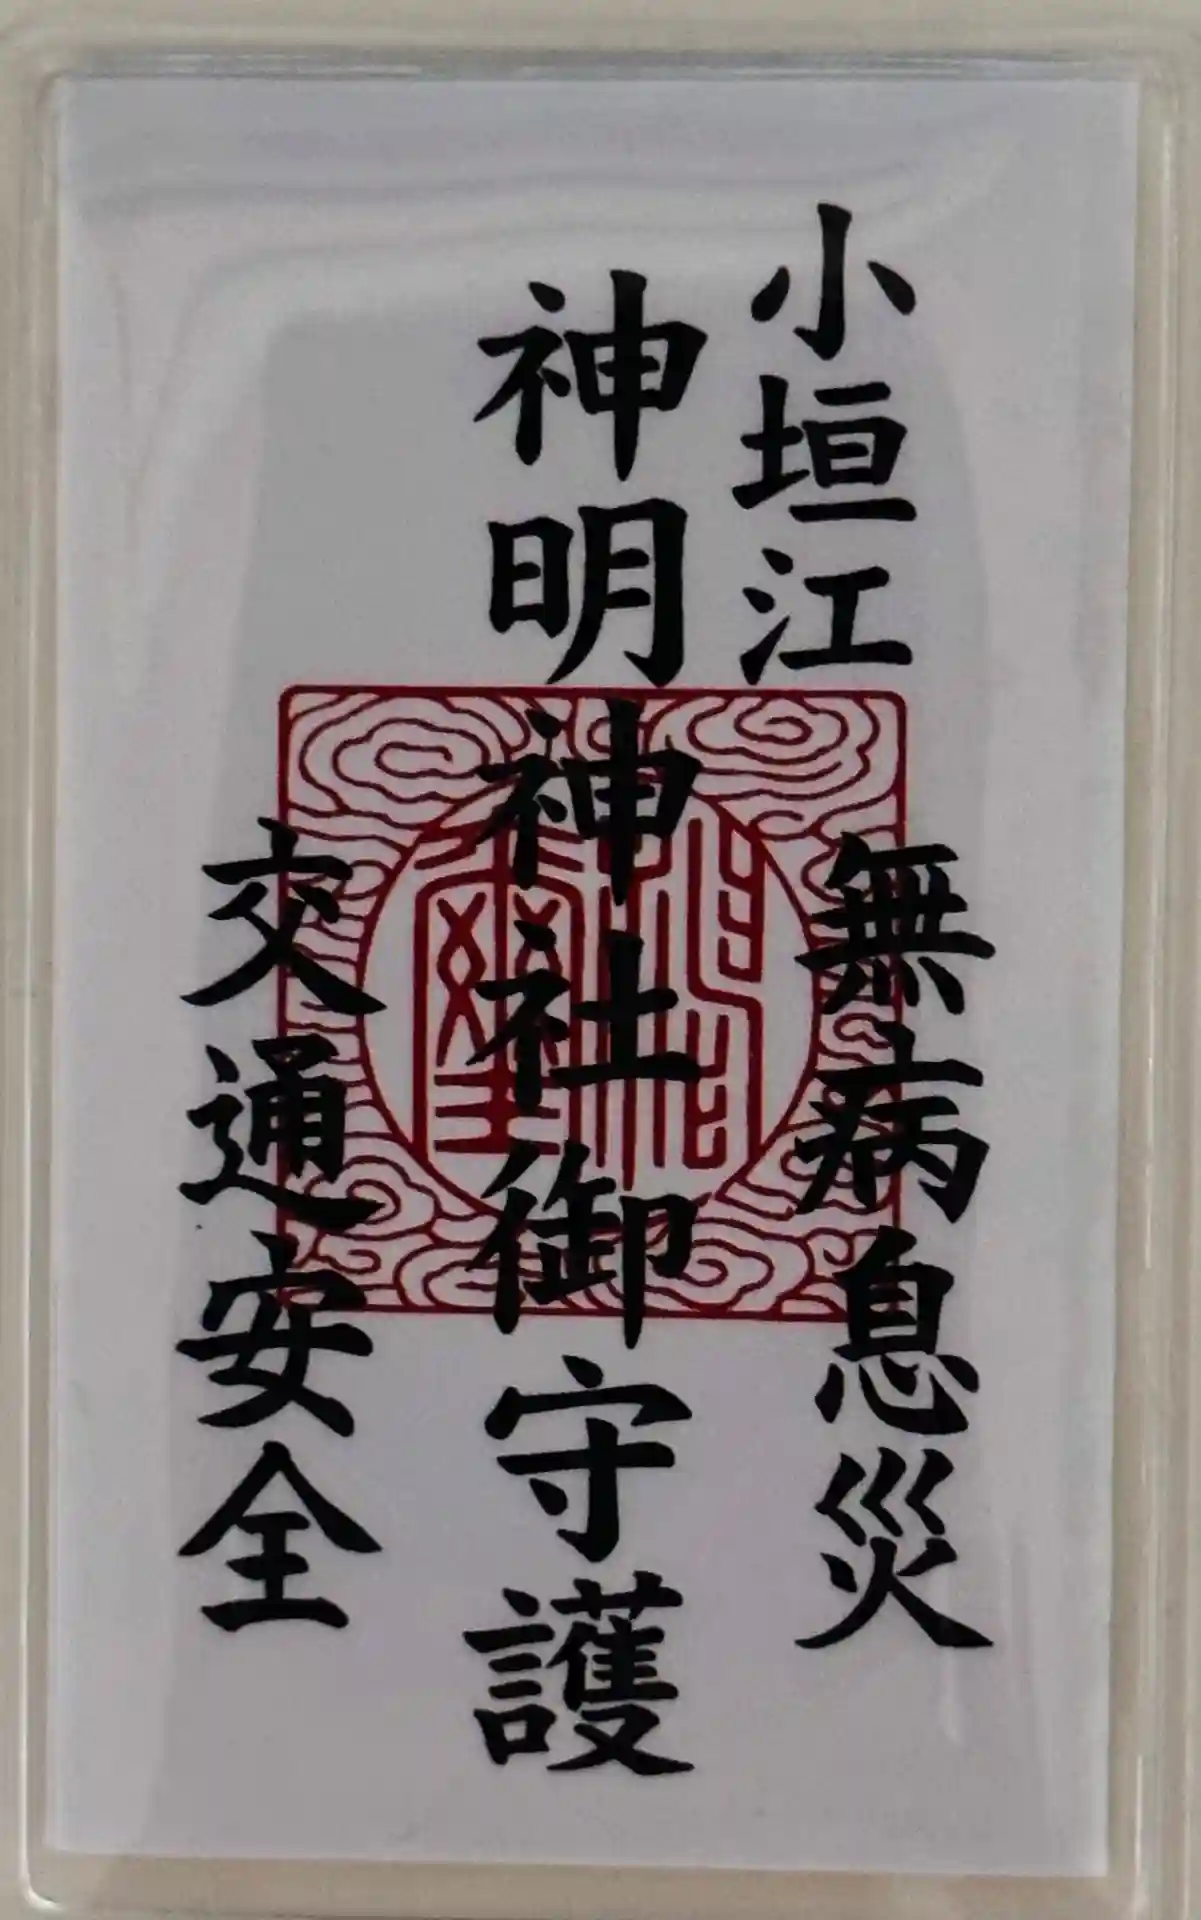 小垣江
神明神社御守護
無病息災
交通安全